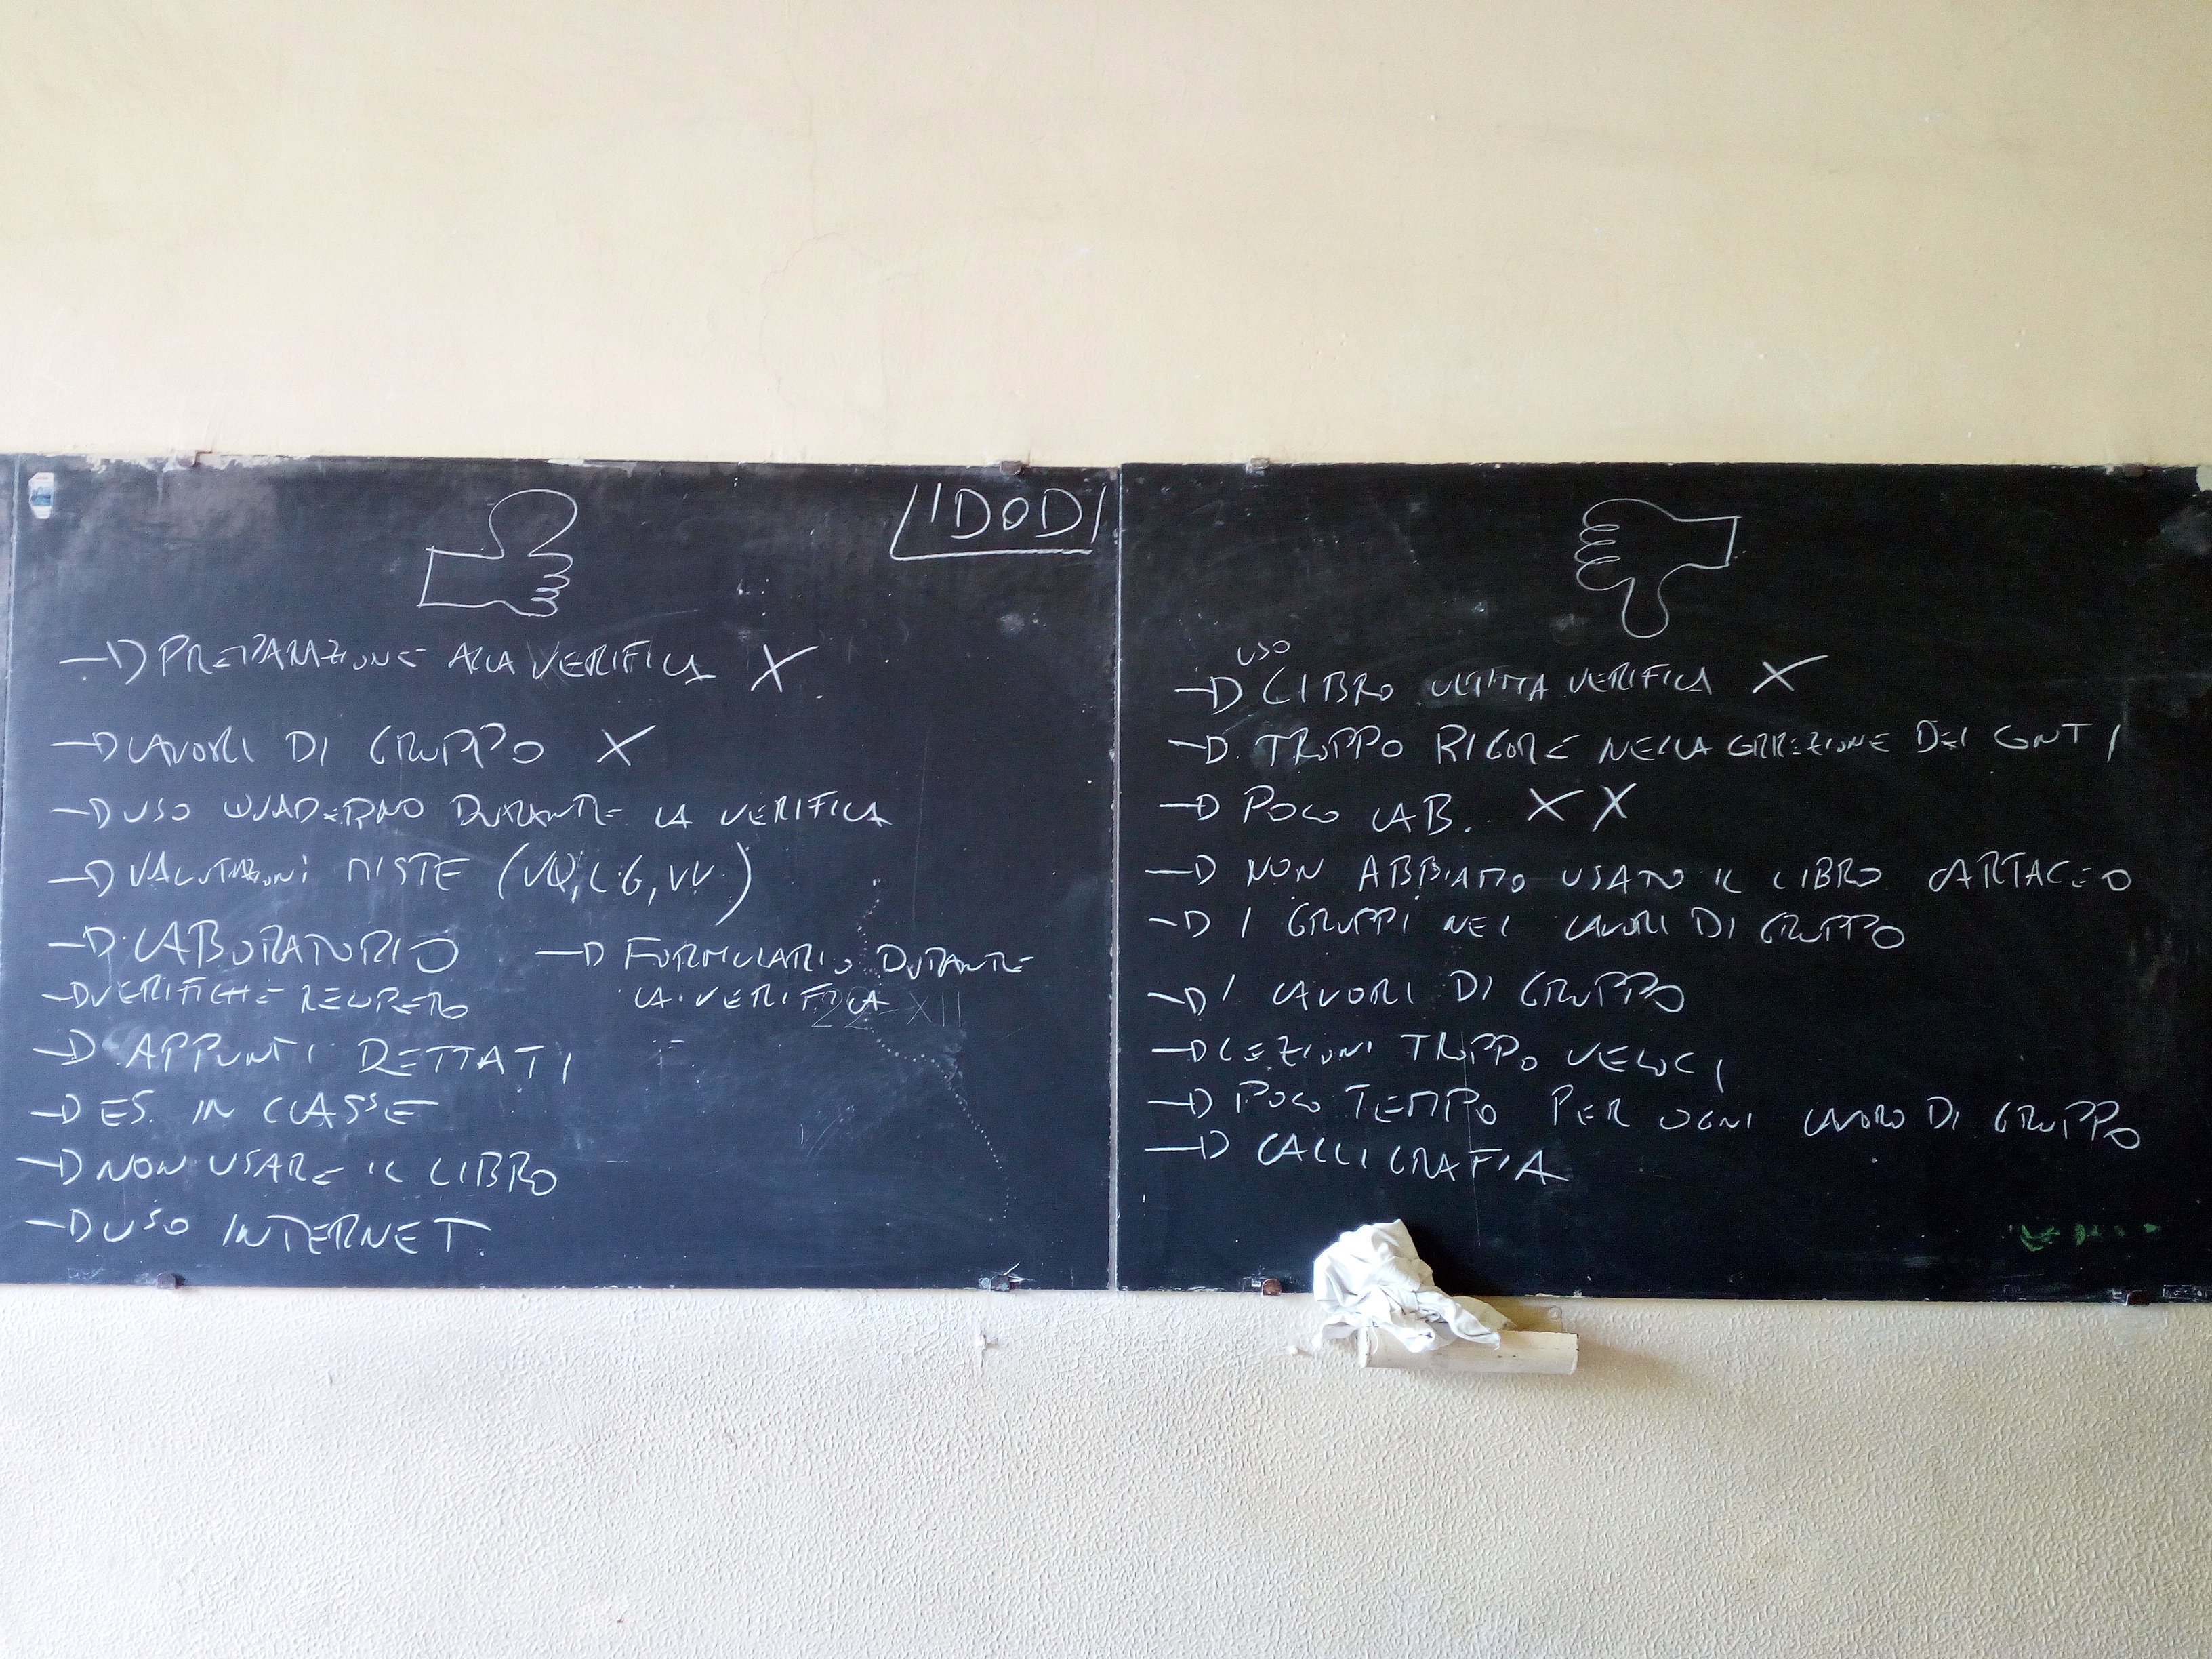 1DOD
→ PREPARAZIONE ALLA VERIFICA X
→ LAVORI DI GRUPPO X
→ USO QUADERNO DURANTE LA VERIFICA
→ VALUTAZIONI MISTE (VQ, LG, VV)
→ LABORATORIO
→ VERIFICHE RECUPERO
→ FORMULARIO DURANTE
LA VERIFICA
22 XII
→ APPUNTI DETTATI
→ ES. IN CLASSE
→ NON USARE IL LIBRO
→ USO INTERNET
USO
→ LIBRO ULTIMA VERIFICA X
→ TROPPO RIGORE NELLA CORREZIONE DEI CONTI
→ POCO LAB. X X
→ NON ABBIAMO USATO IL LIBRO CARTACEO
→ I GRUPPI NEI LAVORI DI GRUPPO
→ I LAVORI DI GRUPPO
→ LEZIONI TROPPO VELOCI
→ POCO TEMPO PER OGNI LAVORO DI GRUPPO
→ CALLIGRAFIA